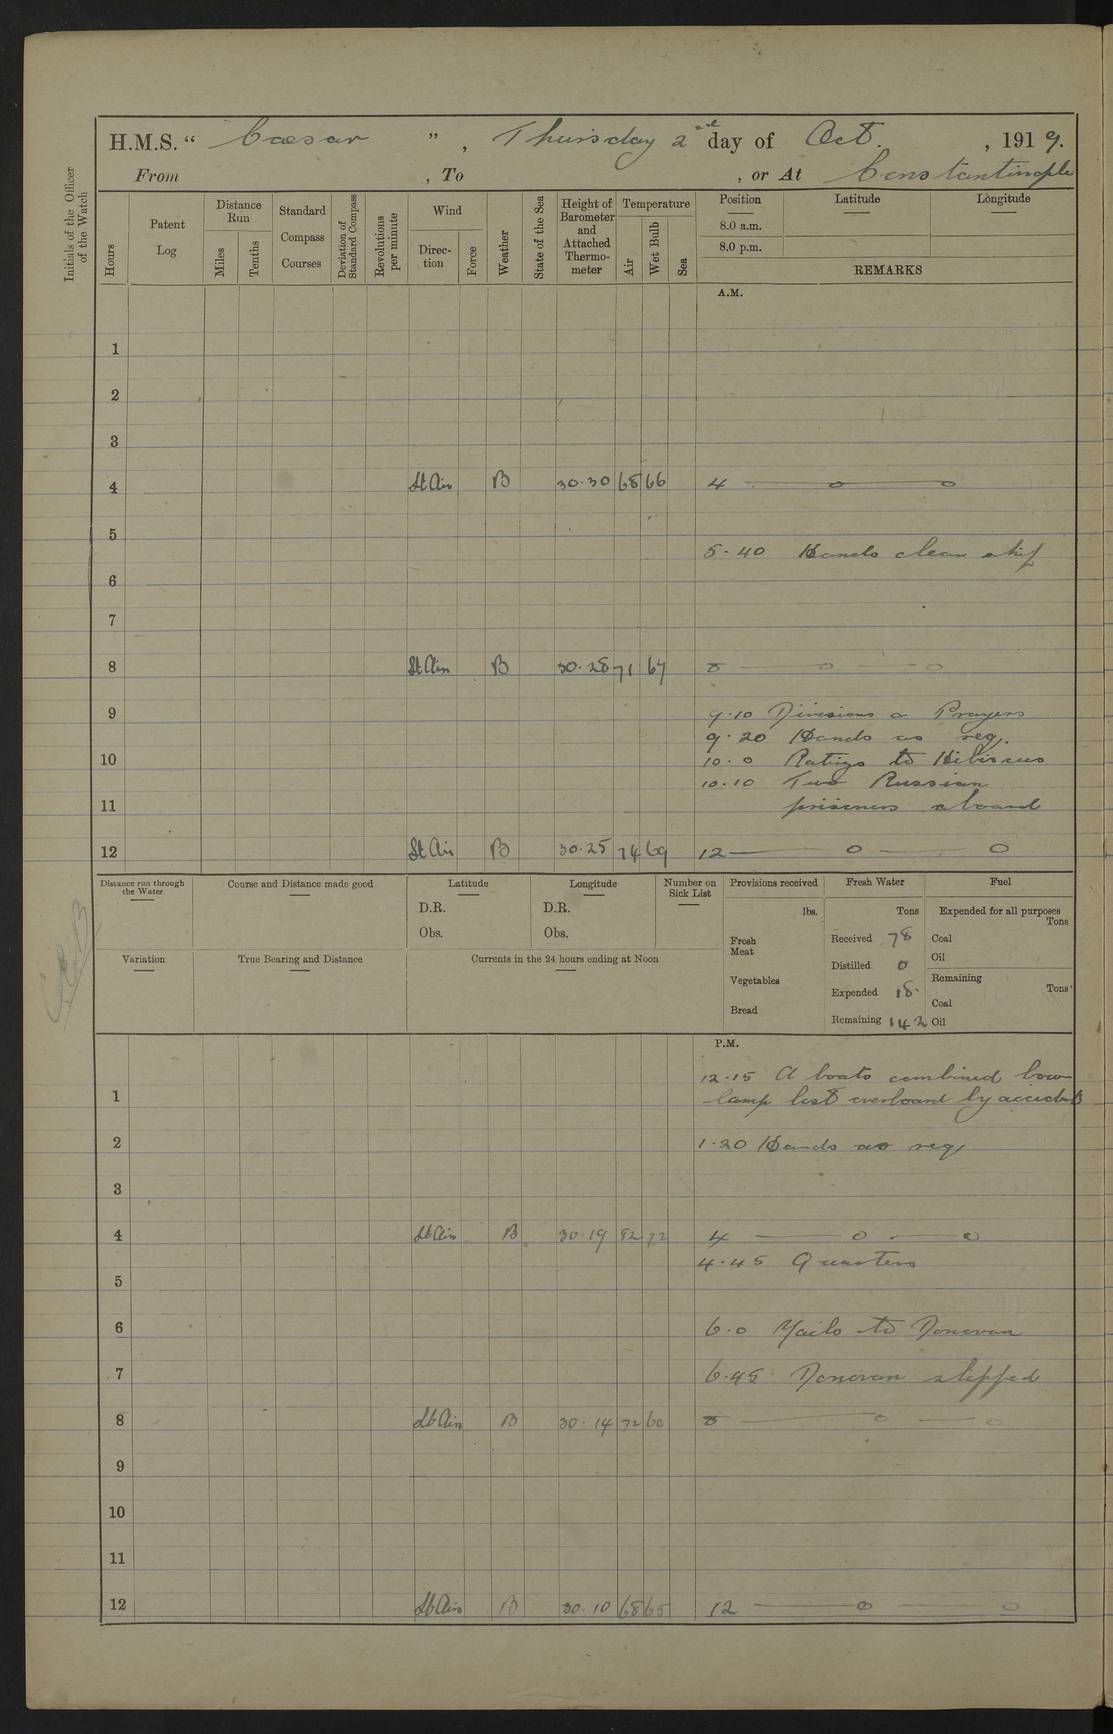 H.M.S. “ Caesar ” , Thursday 2nd day of Oct. , 1919.
From , To , or At Constantinople
Initials of the Officer of the Watch
Hours
Patent Log
Distance Run
Miles
Tenths
Standard Compass Courses
Deviation of Standard Compass
Revolutions per minute
Wind
Direction
Force
Weather
State of the Sea
Height of Barometer and Attached Thermometer
Temperature
Air
Wet Bulb
Sea
Position Latitude Longitude
8.0 a.m.
8.0 p.m.
REMARKS
A.M.
1
2
3
4 Lt Airs B 30.30 68 66 4 — o — o
5
5.40 Hands clean ship
6
7
8 Lt Airs B 30.28 71 67 8 — o — o
9 9.10 Divisions & Prayers
9.20 Hands as req.
10 10.0 Ratings to Hibiscus
10.10 Two Russian
11 prisoners aboard
12 Lt Airs B 30.25 74 69 12 — o — o
Distance run through the Water
Course and Distance made good
Latitude
D.R.
Obs.
Longitude
D.R.
Obs.
Number on Sick List
Provisions received
lbs.
Fresh Meat
Vegetables
Bread
Fresh Water
Tons
Received 78
Distilled 0
Expended 18
Remaining 142
Fuel
Expended for all purposes
Tons
Coal
Oil
Remaining
Tons
Coal
Oil
Variation
True Bearing and Distance
Currents in the 24 hours ending at Noon
P.M.
12.15 A boats combined bow
1 lamp lost overboard by accident
2 1.20 Hands as req.
3
4 Lt Airs B 30.19 82 72 4 — o — o
4.45 Quarters
5
6 6.0 Mails to Donovan
7 6.45 Donovan slipped
8 Lt Airs B 30.14 72 60 8 — o — o
9
10
11
12 Lt Airs B 30.10 68 65 12 — o — o